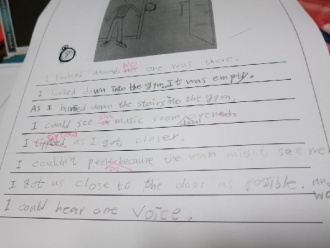 I looked around no one was there.
I looked down into the gym. It was empty.
As I down the stairs into the gym,
I could see music room
I as I got closer.
I couldn't because the man might see me
I got as close to the door as possible. and
I could hear one voice.